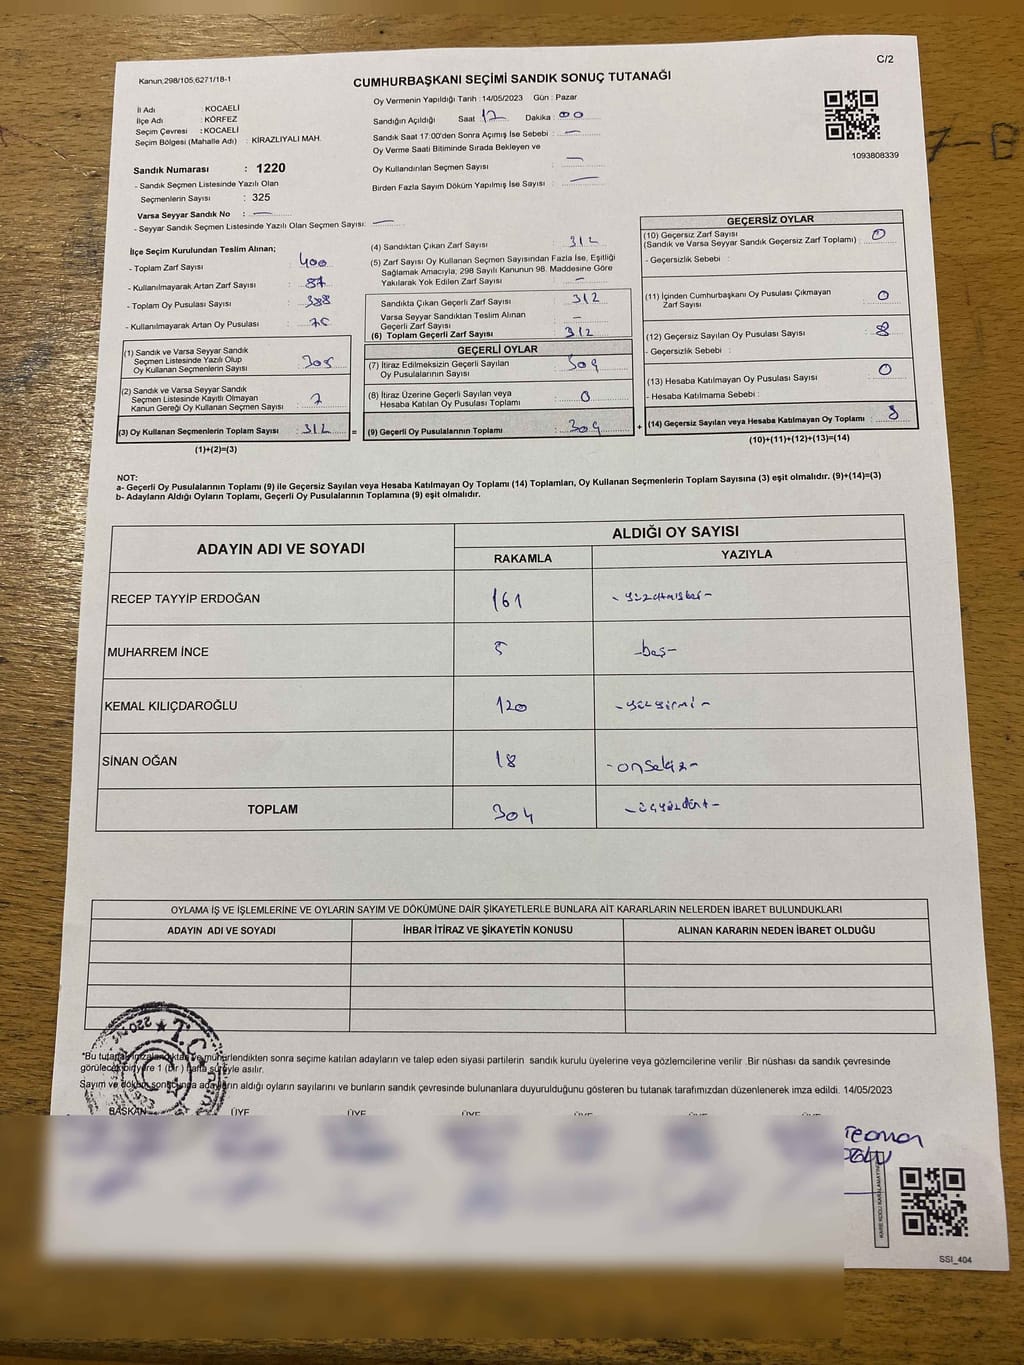 C/2
Kanun,298/105,6271/18-1
CUMHURBAŞKANI SEÇİMİ SANDIK SONUÇ TUTANAĞI
İl Adı : KOCAELİ
İlçe Adı : KÖRFEZ
Seçim Çevresi : KOCAELİ
Seçim Bölgesi (Mahalle Adı) : KİRAZLIYALI MAH.
Sandık Numarası : 1220
- Sandık Seçmen Listesinde Yazılı Olan
Seçmenlerin Sayısı : 325
Varsa Seyyar Sandık No : —
- Seyyar Sandık Seçmen Listesinde Yazılı Olan Seçmen Sayısı: —
Oy Vermenin Yapıldığı Tarih : 14/05/2023 Gün : Pazar
Sandığın Açıldığı Saat 17 Dakika : 00
Sandık Saat 17:00'den Sonra Açımış İse Sebebi : —
Oy Verme Saati Bitiminde Sırada Bekleyen ve
Oy Kullandırılan Seçmen Sayısı : —
Birden Fazla Sayım Döküm Yapılmış İse Sayısı : —
1093808339
7-B
İlçe Seçim Kurulundan Teslim Alınan;
- Toplam Zarf Sayısı : 400
- Kullanılmayarak Artan Zarf Sayısı : 87
- Toplam Oy Pusulası Sayısı : 388
- Kullanılmayarak Artan Oy Pusulası :
(1) Sandık ve Varsa Seyyar Sandık
Seçmen Listesinde Yazılı Olup
Oy Kullanan Seçmenlerin Sayısı : 305
(2) Sandık ve Varsa Seyyar Sandık
Seçmen Listesinde Kayıtlı Olmayan
Kanun Gereği Oy Kullanan Seçmen Sayısı : 7
(3) Oy Kullanan Seçmenlerin Toplam Sayısı : 312
(1)+(2)=(3)
(4) Sandıktan Çıkan Zarf Sayısı : 312
(5) Zarf Sayısı Oy Kullanan Seçmen Sayısından Fazla İse, Eşitliği
Sağlamak Amacıyla, 298 Sayılı Kanunun 98. Maddesine Göre
Yakılarak Yok Edilen Zarf Sayısı : —
Sandıkta Çıkan Geçerli Zarf Sayısı : 312
Varsa Seyyar Sandıktan Teslim Alınan
Geçerli Zarf Sayısı : —
(6) Toplam Geçerli Zarf Sayısı : 312
GEÇERLİ OYLAR
(7) İtiraz Edilmeksizin Geçerli Sayılan
Oy Pusulalarının Sayısı : 304
(8) İtiraz Üzerine Geçerli Sayılan veya
Hesaba Katılan Oy Pusulası Toplamı : 0
= (9) Geçerli Oy Pusulalarının Toplamı : 304
GEÇERSİZ OYLAR
(10) Geçersiz Zarf Sayısı
(Sandık ve Varsa Seyyar Sandık Geçersiz Zarf Toplamı) : 0
- Geçersizlik Sebebi :
(11) İçinden Cumhurbaşkanı Oy Pusulası Çıkmayan
Zarf Sayısı : 0
(12) Geçersiz Sayılan Oy Pusulası Sayısı : 8
- Geçersizlik Sebebi :
(13) Hesaba Katılmayan Oy Pusulası Sayısı : 0
- Hesaba Katılmama Sebebi :
+ (14) Geçersiz Sayılan veya Hesaba Katılmayan Oy Toplamı : 8
(10)+(11)+(12)+(13)=(14)
NOT:
a- Geçerli Oy Pusulalarının Toplamı (9) ile Geçersiz Sayılan veya Hesaba Katılmayan Oy Toplamı (14) Toplamları, Oy Kullanan Seçmenlerin Toplam Sayısına (3) eşit olmalıdır. (9)+(14)=(3)
b- Adayların Aldığı Oyların Toplamı, Geçerli Oy Pusulalarının Toplamına (9) eşit olmalıdır.
ADAYIN ADI VE SOYADI ALDIĞI OY SAYISI
RAKAMLA YAZIYLA
RECEP TAYYİP ERDOĞAN 161 - yüzatmışbir -
MUHARREM İNCE 5 - beş -
KEMAL KILIÇDAROĞLU 120 - yüzyirmi -
SİNAN OĞAN 18 - onsekiz -
TOPLAM 304 - üçyüzdört -
OYLAMA İŞ VE İŞLEMLERİNE VE OYLARIN SAYIM VE DÖKÜMÜNE DAİR ŞİKAYETLERLE BUNLARA AİT KARARLARIN NELERDEN İBARET BULUNDUKLARI
ADAYIN ADI VE SOYADI İHBAR İTİRAZ VE ŞİKAYETİN KONUSU ALINAN KARARIN NEDEN İBARET OLDUĞU
T.C.
*Bu tutanak imzalandıktan ve mühürlendikten sonra seçime katılan adayların ve talep eden siyasi partilerin sandık kurulu üyelerine veya gözlemcilerine verilir .Bir nüshası da sandık çevresinde
görülecek biryere 1 (bir ) hafta süreyle asılır.
Sayım ve döküm sonucunda adayların aldığı oyların sayılarını ve bunların sandık çevresinde bulunanlara duyurulduğunu gösteren bu tutanak tarafımızdan düzenlenerek imza edildi. 14/05/2023
BAŞKAN ÜYE ÜYE ÜYE ÜYE ÜYE ÜYE
SSI_404